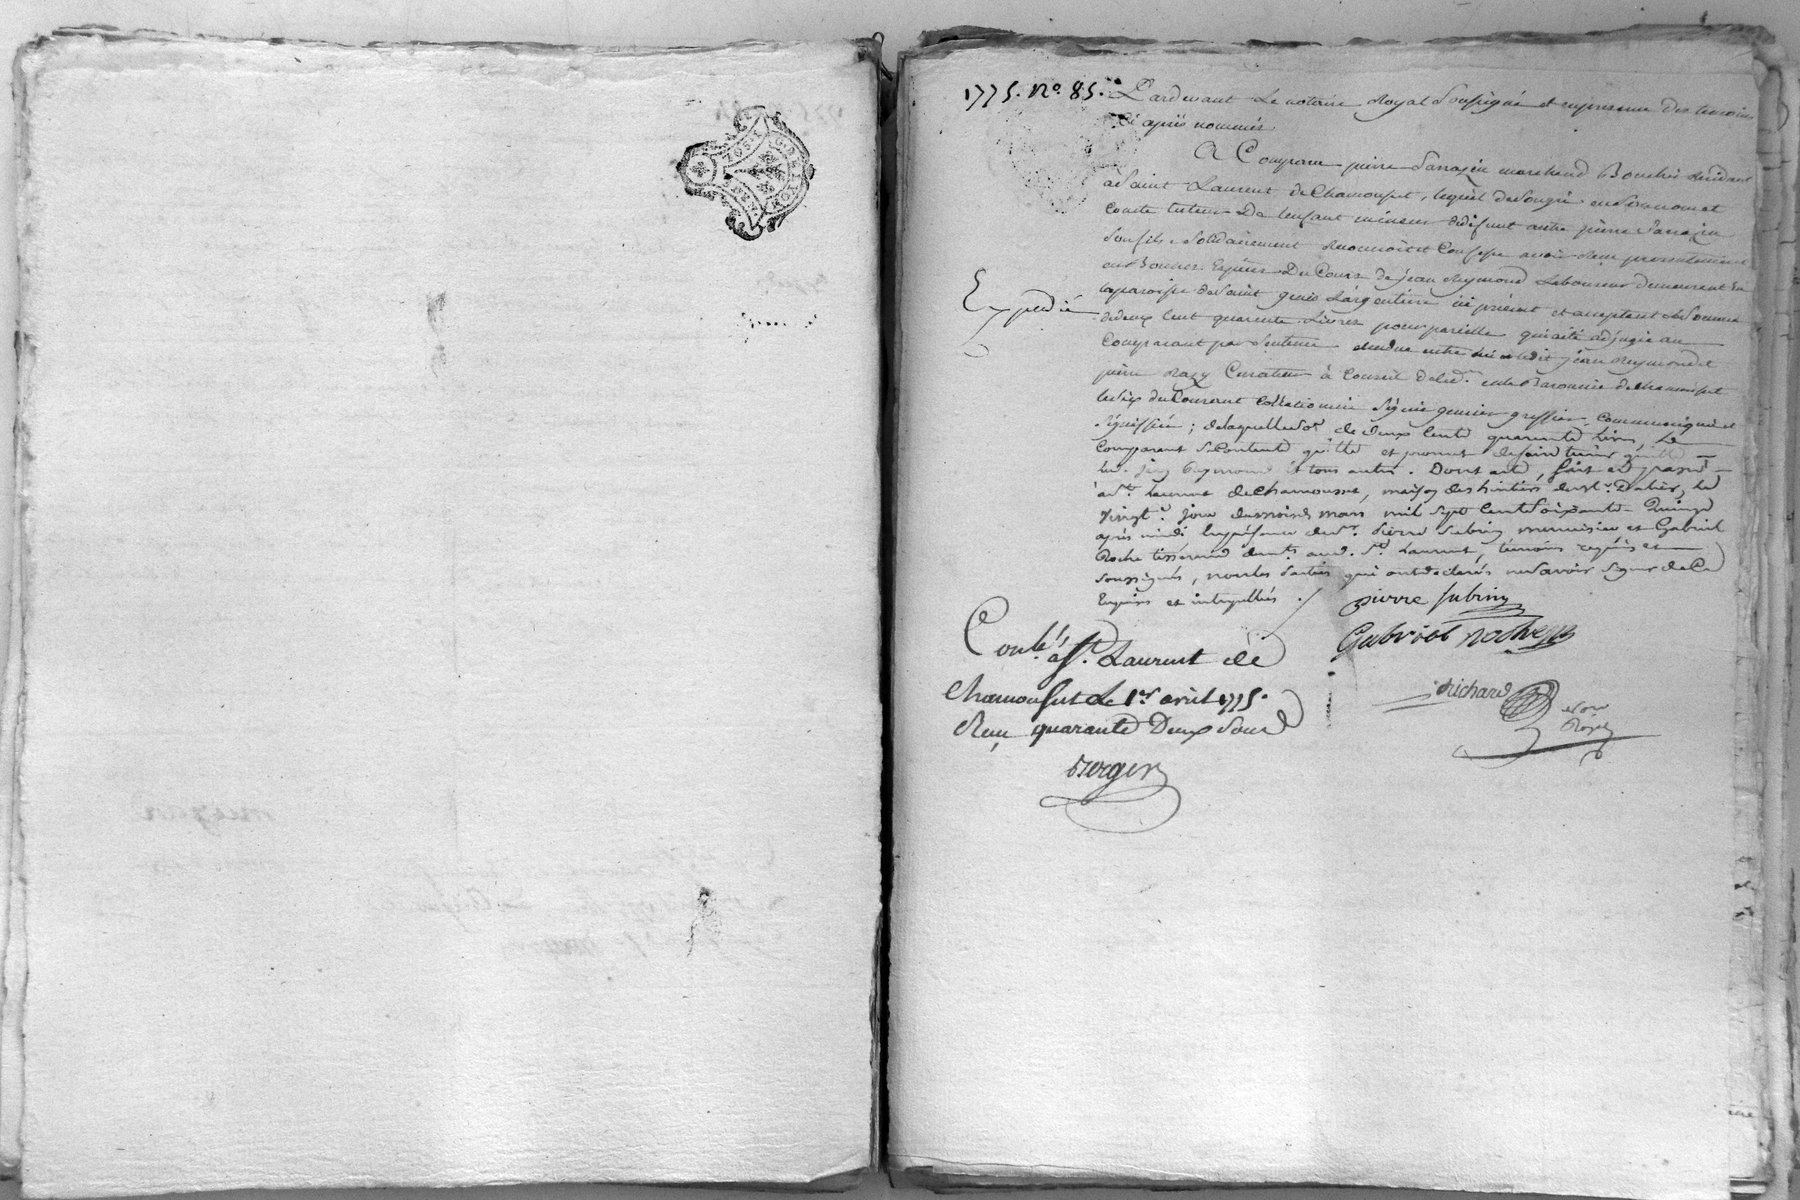 1775. No. 85.
Pardevant Le notaire Royal Soussigné et en presence Des temoins
Ci après nommés
A Comparu pierre Sarrazin marchand Boucher résidant
à Saint Laurent de Chamousset, lequel de son gré en son nom et
comme tuteur De lenfant mineur dedéfunt autre pierre Sarrazin
Son fils, Solidairement Reconnoit et Confesse avoir Reçu presentement
en Bonnes Espèces Du Cours de jean Reymond Laboureur demeurant en
la paroisse de Saint genis Largentière ici présent et acceptant la Somme
de deux Cent quarente Livres pour pareille qui a été adjugée au
Comparant par Sentence rendue entre lui et ledit jean Reymond et
pierre Razy Curateur à Conseil dud. en la Baronnie de chamousset
le Six du Courant Collationnée Signée greffier, communiquée et
Signiffiée ; de laquelle de deux Cents quarente livres, Le
Comparant Se Contente quitte et promet de faire tenir quitte
led. jean Reymond et tous autres. Dont acte, fait et passé
à St. Laurent de chamousset, maison des héritiers du Sr. le
vingt jour du mois de mars mil sept Cent Soixante Quinze
après midi, En présence de Sr. Pierre Subrin menuisier et Gabriel
Roche tisserand demts. aud. St. Laurent, témoins requis et
Soussignés, non les parties qui ont declarés ne Savoir Signer de Ce
Enquises et interpellées ./.
Expedié
pierre Subrin
Gabriel Roche
Richard
Not.re
Royal
Conlé. à St. Laurent de
Chamousset Le 1er avril 1775.
Reçu quarante Deux Sous
Berger